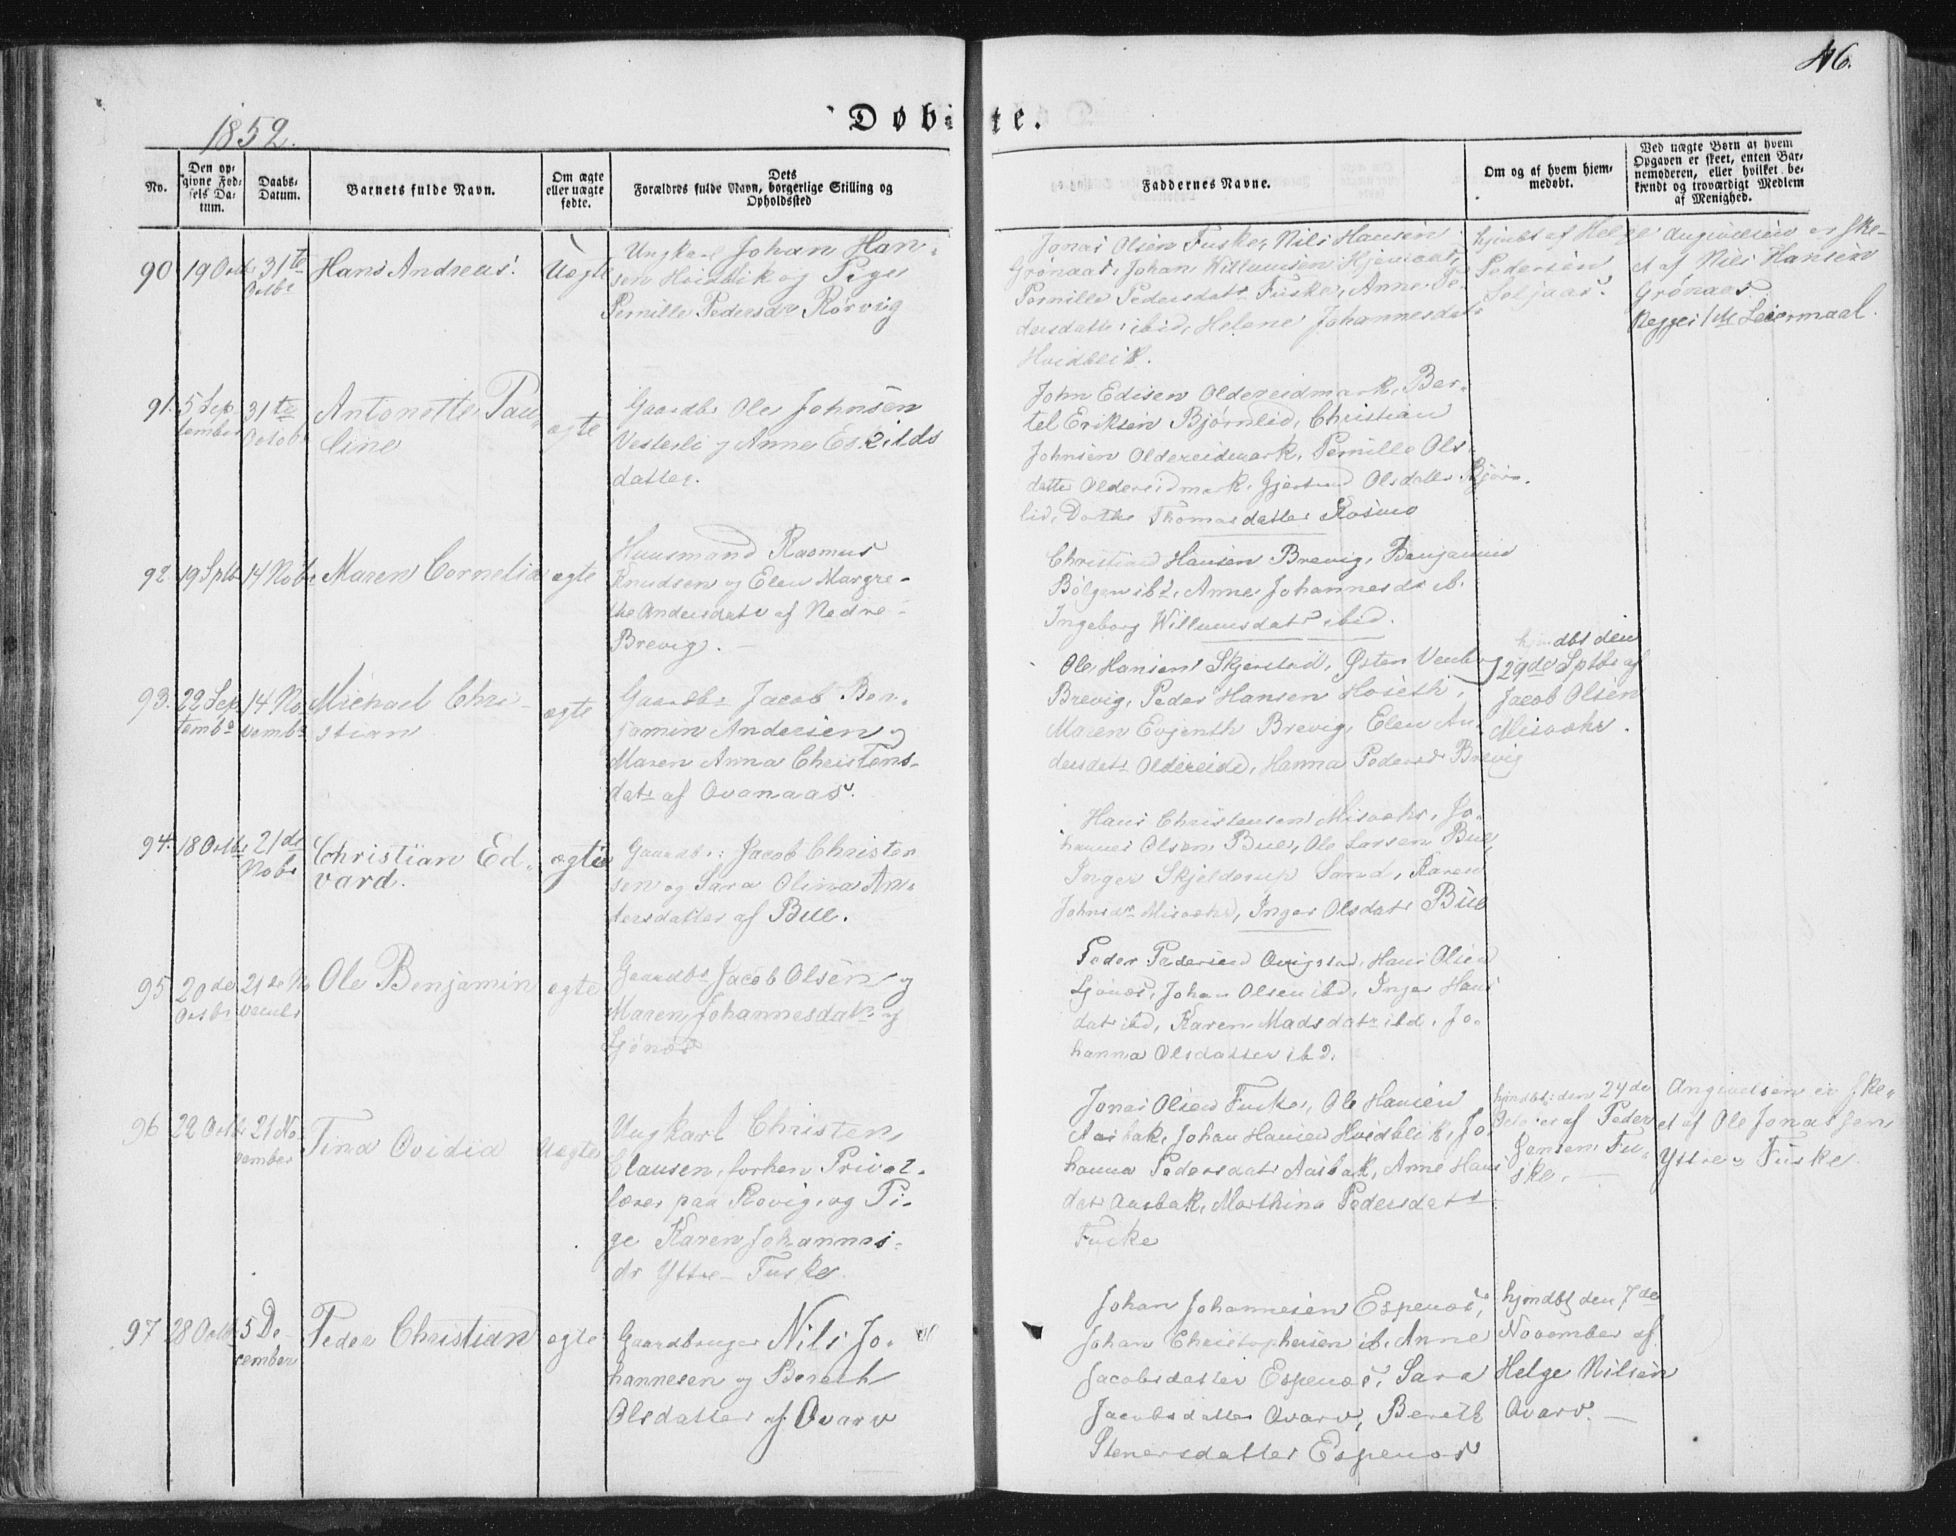 46.
1852.
Døbte.
No.
Den opgivne Fødsels Datum.
Daabs-Datum.
Barnets fulde Navn.
Om ægte eller uægte fødte.
Dets Forældres fulde Navn, borgerlige Stilling og Opholdssted
Faddernes Navne.
Om og af hvem hjemmedøbt.
Ved uægte Børn af hvem Opgaven er skeet, enten Barnemoderen, eller hvilket bekjendt og troværdigt Medlem af Menighed.
90
31te
Hans Andreas.
Uegte
Ungkarl Johan Han-
sen Hvidblik og Pige
Pernille Pedersdr Rørvig
Jonas Olsen Fuske, Nils Hansen
Grønaas, Johan Willumsen
Pernille Pedersdatr Fuske, Anne Pe
dersdatter ibid, Helene Johannesdatr
Hvidblik.
hjmdbt af Helge
Pedersen
Angivelsen er ske-
et af Nils Hansen
Grønaas
Begges 1ste Leiermaal.
91.
5 Sep
tember
31te
Octob
Antonette Pau
line
ægte
Gaardbr Ole Johnsen
Vesterli og Anne Eskilds
datter.
John Edisen Oldereidmark, Ber-
tel Eriksen Bjørnlid, Christian
Johnsen Oldereidmark, Pernille Ols-
datter Oldereidmark, Gjertrud Olsdatter Bjørn-
lid, Dorthe Thomasdatter Rosmo
92
19 Sptb
14 Nobr
Maren Cornelia
ægte
Huusmand Rasmus
Knudsen og Elen Margre-
the Andersdatr af Nedre
Brevig.
Christian Hansen Brevig, Benjamin
Bølgen ibd, Anne Johannesdr ib.
Ingeborg Willumsdatr ibid.
93.
22 Sep
tembr
14 No
vembr
Michael Chri-
stian
ægte
Gaardbr Jacob Ben-
jamin Andersen og
Maren Anna Christens-
datr af Ovanaas.
Ole Hansen Skjerstad, Østen
Brevig, Peder Hansen Hoseth,
Maren Evjenth Brevig, Elen An
dersdatr Oldereide, Hanna Pedersd Brevig
hjmdbt den
29de Sptbr af
Jacob Olsen
Misvær.
94.
18 Octbr
21de
Nobr
Christian Ed-
vard.
ægte
Gaardbr: Jacob Christen
sen og Sara Olina An-
dersdatter af Bue.
Hans Christensen Misvær, Jo-
hannes Olsen Bue, Ole Larsen Bue,
Inger Skjelderup Sand, Karen
Johnsdr Misvær, Inger Olsdatr Bue
95
20de
Octbr
21de No
vembr
Ole Benjamin
ægte
Gaardbr Jacob Olsen og
Maren Johannesdatr
Ljønes
Peder Pedersen Hans Olsen
Ljønes, Johan Olsen ibd, Inger Hans
datr ibd, Karen Madsdatr ibd, Jo-
hanna Olsdatter ibd.
96
22 Octbr
21 No-
vember
Tina Ovidia
Uægte
Ungkarl Christen
Clausen, forhen Privat-
lærer paa Røvig, og Pi-
ge Karen Johannes-
dr Yttre Fuske.
Jonas Olsen Fuske, Ole Hansen
Aasbak, Johan Hansen Hvidblik, Jo-
hanna Pedersdatr Aasbak, Anne Hans
datr Aasbak, Marthina Pedersdatr
Fuske
hjmdbt: den 24de
af Peder
Jensen Fu-
ske.
Angivelsen er ske-
et af Ole Jonassen
Yttre Fuske
97
28 Octb
5 De-
cember
Peder Christian
ægte
Gaardbruger Nils Jo-
hannesen og Bereth
Olsdatter af Qvarv
Johan Johannesen Espenæs,
Johan Christophersen ib, Anne
Jacobsdatter Espenæs, Sara
Jacobsdatter Qvarv, Bereth
Stenersdatter Espenæs
hjmdbt den 7de
November af
Helge Nilsen
Qvarv.